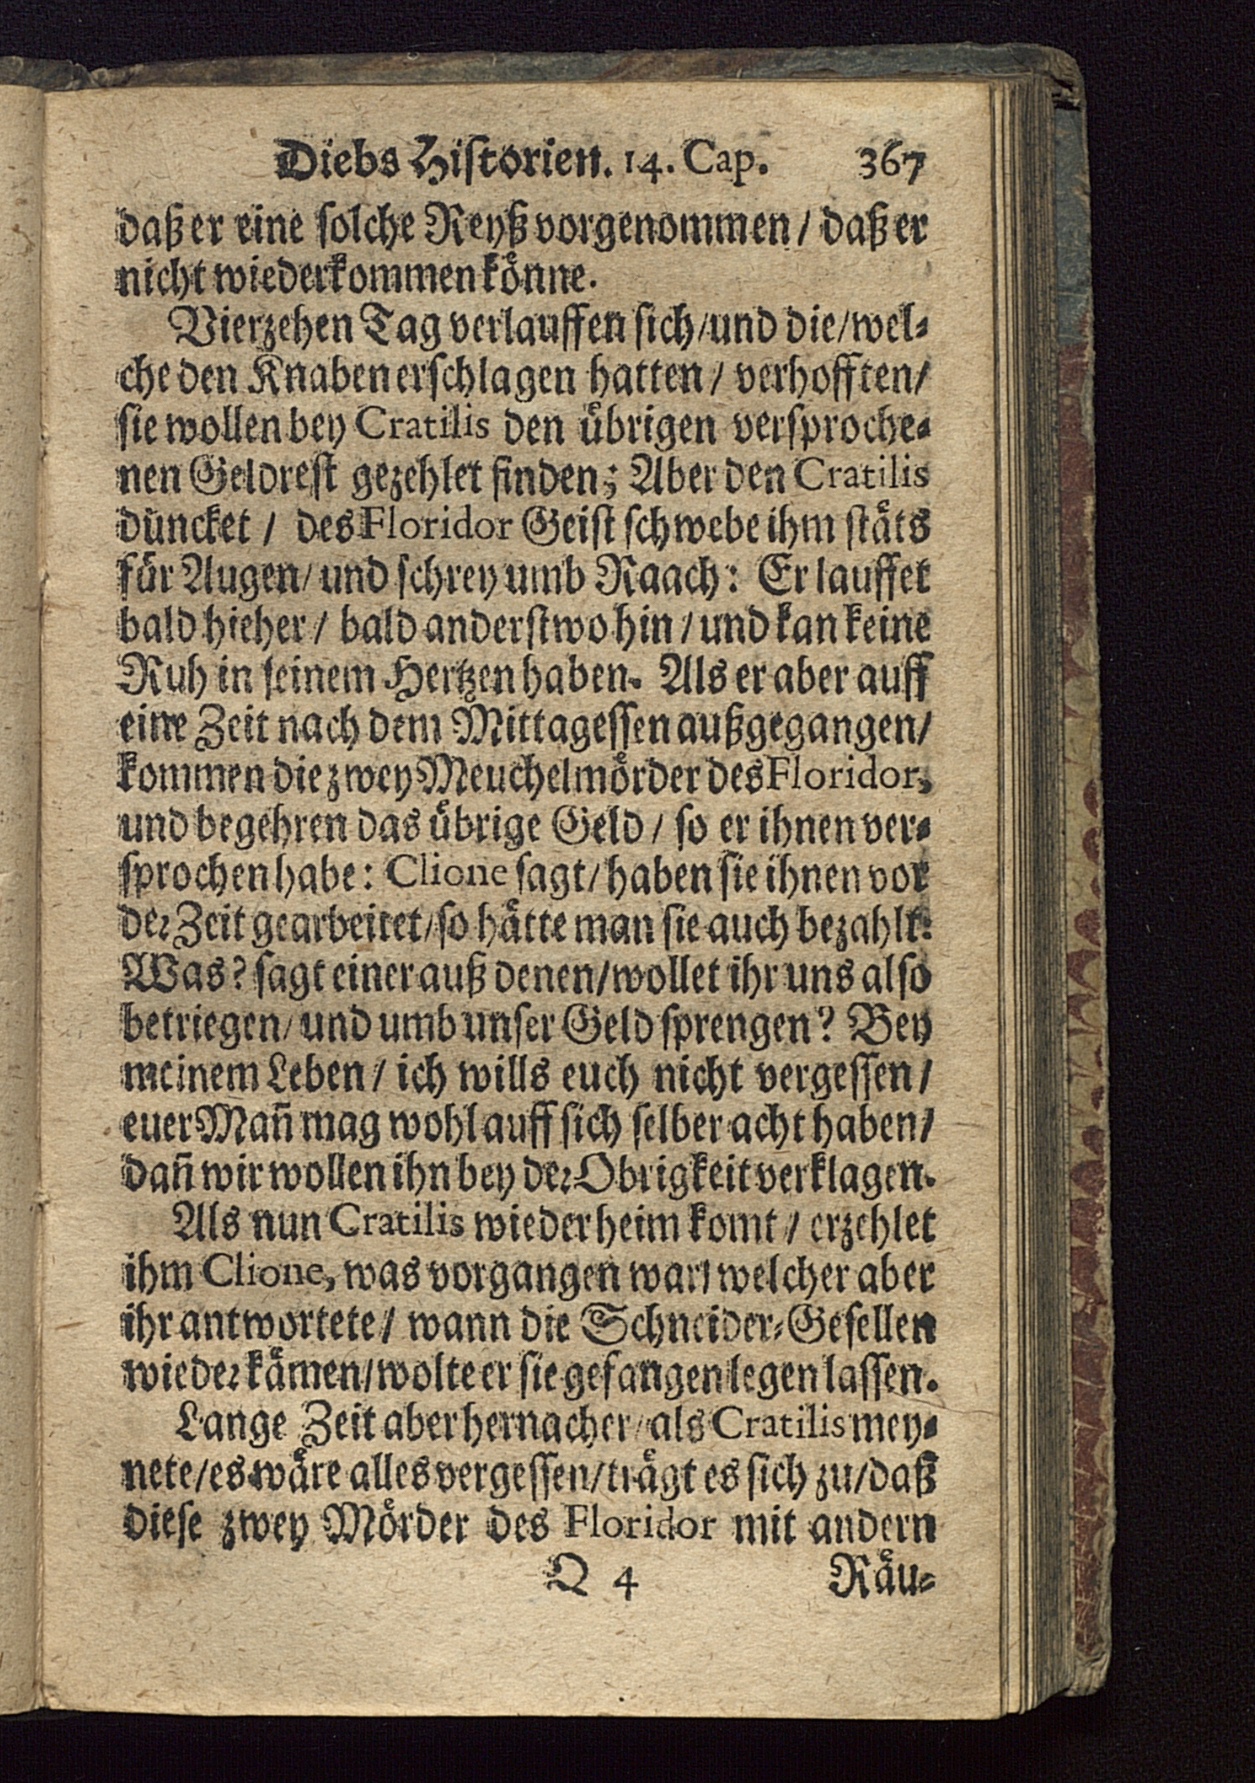 Diebs Historien. 14. Cap. 367
daß er eine solche Reyß vorgenommen / daß er
nicht wiederkommen könne.
Vierzehen Tag verlauffen sich / und die / wel-
che den Knaben erschlagen hatten / verhofften /
sie wollen bey Cratilis den übrigen versproche-
nen Geldrest gezehlet finden; Aber den Cratilis
düncket / des Floridor Geist schwebe ihm stäts
für Augen / und schrey umb Raach: Er lauffet
bald hieher / bald anderstwo hin / und kan keine
Ruh in seinem Hertzen haben. Als er aber auff
eine Zeit nach dem Mittagessen außgegangen /
kommen die zwey Meuchelmörder des Floridor,
und begehren das übrige Geld / so er ihnen ver-
sprochen habe: Clione sagt / haben sie ihnen vor
der Zeit gearbeitet / so hätte man sie auch bezahlt:
Was? sagt einer auß denen / wollet ihr uns also
betriegen / und umb unser Geld sprengen? Bey
meinem Leben / ich wills euch nicht vergessen /
euer Mañ mag wohl auff sich selber acht haben /
dañ wir wollen ihn bey der Obrigkeit verklagen.
Als nun Cratilis wieder heim komt / erzehlet
ihm Clione, was vorgangen war / welcher aber
ihr antwortete / wann die Schneider-Gesellen
wieder kämen / wolte er sie gefangen legen lassen.
Lange Zeit aber hernacher / als Cratilis mey-
nete / es wäre alles vergessen / trägt es sich zu / daß
diese zwey Mörder des Floridor mit andern
Q 4 Räu-